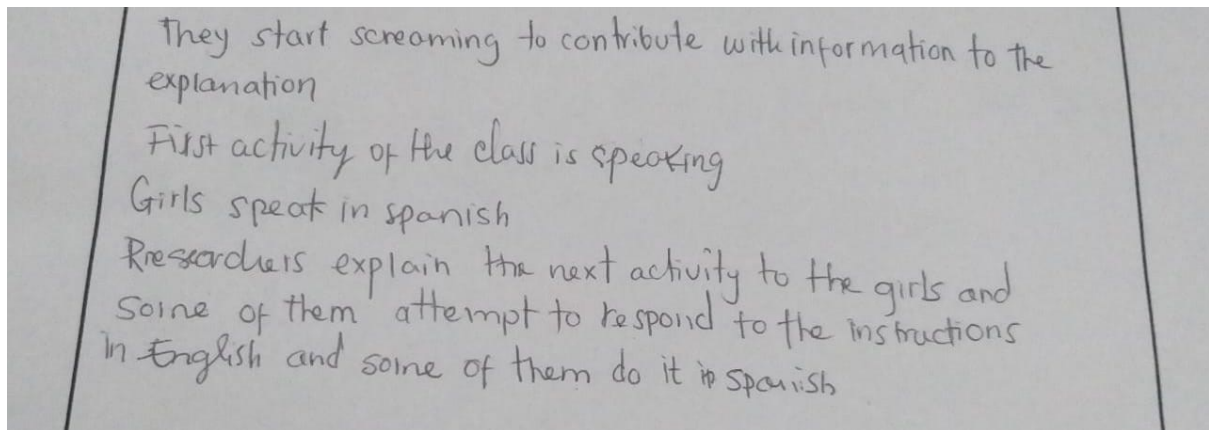 They start screaming to contribute with information to the
explanation
First activity of the class is speaking
Girls speak in spanish
Researchers explain the next activity to the girls and
some of them attempt to respond to the instructions
in English and some of them do it in Spanish